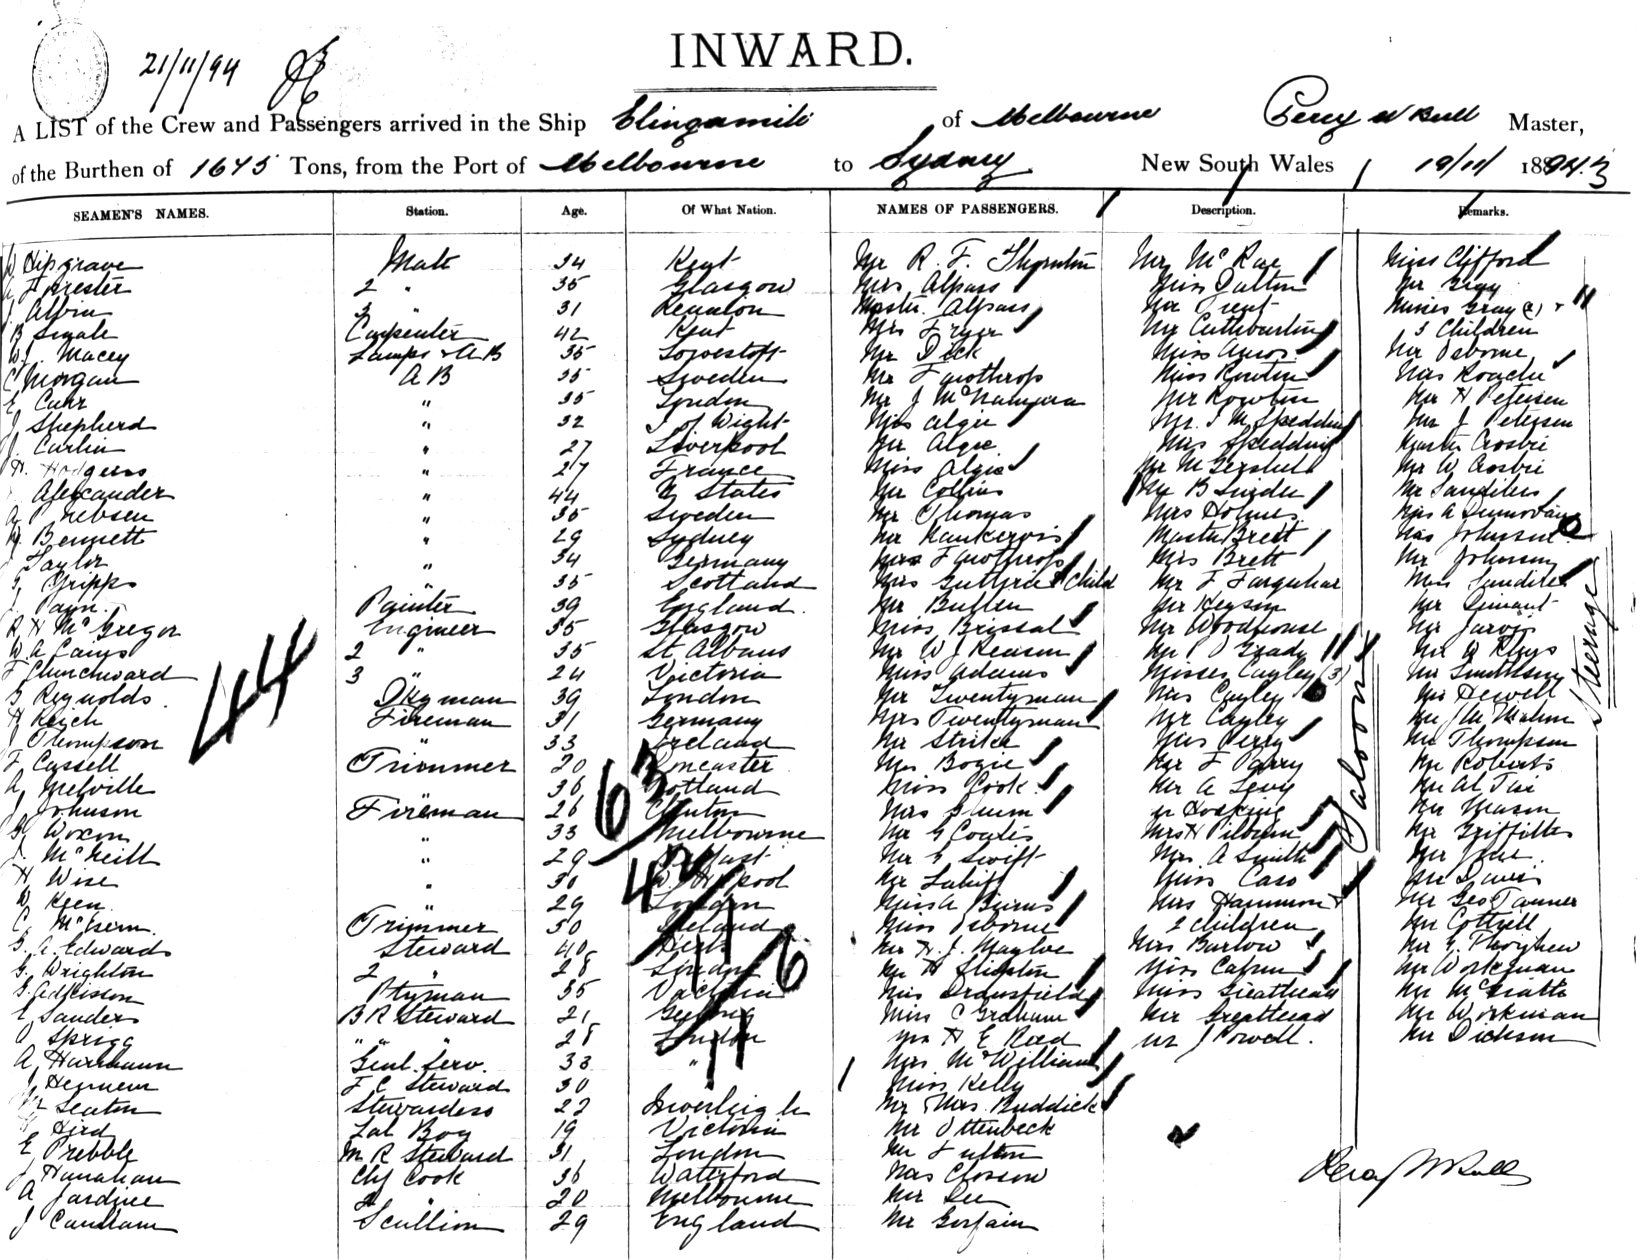 21/11/94
INWARD.
A LIST of the Crew and Passengers arrived in the Ship Elingamite of Melbourne Percy W Bull Master,
of the Burthen of 1675 Tons, from the Port of Melbourne to Sydney New South Wales 19/11/ 1894
SEAMEN'S NAMES. Station. Age. Of What Nation. NAMES OF PASSENGERS. Description. Remarks.
W Hipgrave Mate 34 Kent Mr R. F. Thornton Mr McRae Miss Clifford
Forrester 2 " 35 Glasgow Mrs Alpass Miss Dalton Mr Gray
J Albin 3 " 31 Reunion Master Alpass Mr Trent Misses Gray (2) +
B Carpenter 42 Kent Mrs Fryer Mr Cuthbertson 3 Children
W. Macey Lamps & AB 35 Lowestoft Mr Dick Miss Amos Mr Osborne
C Morgan AB 35 Sweden Mr Miss Rowtin Mrs Roache
E Carr " 35 London Mr J McNamara Mr Mr H Petersen
J Shepherd " 32 I of Wight Mrs Algie Mr. J M Spedding Mr J Petersen
J. Carlin " 27 Liverpool Mr Algie Mrs Spedding Master Crosbie
H. Hodgens " 27 France Miss Algie Mr M Mr W Crosbie
Alexander " 44 U States Mr Collins Mr B Snider Mr Sandilers
" 35 Sweden Mr Thomas Mrs Holmes Mrs A Dunnovan
Bennett " 29 Sydney Mr Hankervis Master Brett Mrs Johnson
Taylor " 34 Germany Mrs Mrs Brett Mr Johnson
G Gripps " 35 Scotland Mrs Guthrie & Child Mr F Farquhar Mrs
J. Payn Painter 39 England. Mr Bullen Mr Heyson Mr Dimant
R H McGregor Engineer 35 Glasgow Miss Brissal Mr Woodhouse Mr Jarvis
W A Cams 2 " 35 St Albans Mr W J Reason Mr P O Grady Mr W Rhys
F Churchward 3 " 24 Victoria Miss Adams Misses Cayley (3) Mr Smithson
G Reynolds Dkyman 39 London Mr Twentyman Mrs Cayley Mr Hewell
H Reich Fireman 31 Germany Mrs Twentyman Mr Cayley Mr J McMahon
Thompson " 33 Ireland Mr Strike Miss Perry Mr Thompson
F Cassell Trimmer 20 Lancaster Mrs Bogie Mr F Parry Mr Roberts
A Melville " 36 Scotland Miss Cook Mr A Levy Mr
J Johnson Fireman 26 Clunton Mrs Gunn Mr Hosking Mr Mason
G Woxon " 33 Melbourne Mr G Coutts Mrs H Mr Griffiths
J. McNeill " 29 Belfast Mr E Swift Mrs A Smith Mr
H Wise " 30 W. Hartlepool Mr Lahiff Miss Caso Mr Davis
W Keen " 29 London Miss A Burns Mrs Hammon + Mr Geo Tanner
C. Trimmer 50 Ireland Miss Osborne 2 children Mr Cottrill
G. A. Edwards Steward 40 Mr H. J. Mayloe Mrs Barlow Mr E.
G. Wrighton 2 " 28 London Mr H Miss Mr Workman
G Adkisson Ptyman 35 Victoria Miss Dransfield Miss Greathead Mr McGrath
E Sanders B R Steward 21 Geelong Miss C Graham Mr Greathead Mr Workman
Sprigg " " " 28 London Mr H E Rod Mr J Powell. Mr Dickson
A Hartmann Genl. Serv. 33 " Mrs McWilliams
J Hegness F C Steward 30 " Miss Kelly
Seaton Stewardess 22 Inverleigh Mr & Mrs Buddick
Hird Lab Boy 19 Victoria Mr Ottenbeck
E Prebble M R Steward 31 London Mr Fulton
J Hanahan Chf Cook 36 Waterford Mrs Closson
A Jardine 2 " 20 Melbourne Mr Lee
J Canham Scullion 29 England Mr Gorfain
Saloon
Steerage
44
63
Percy W Bull